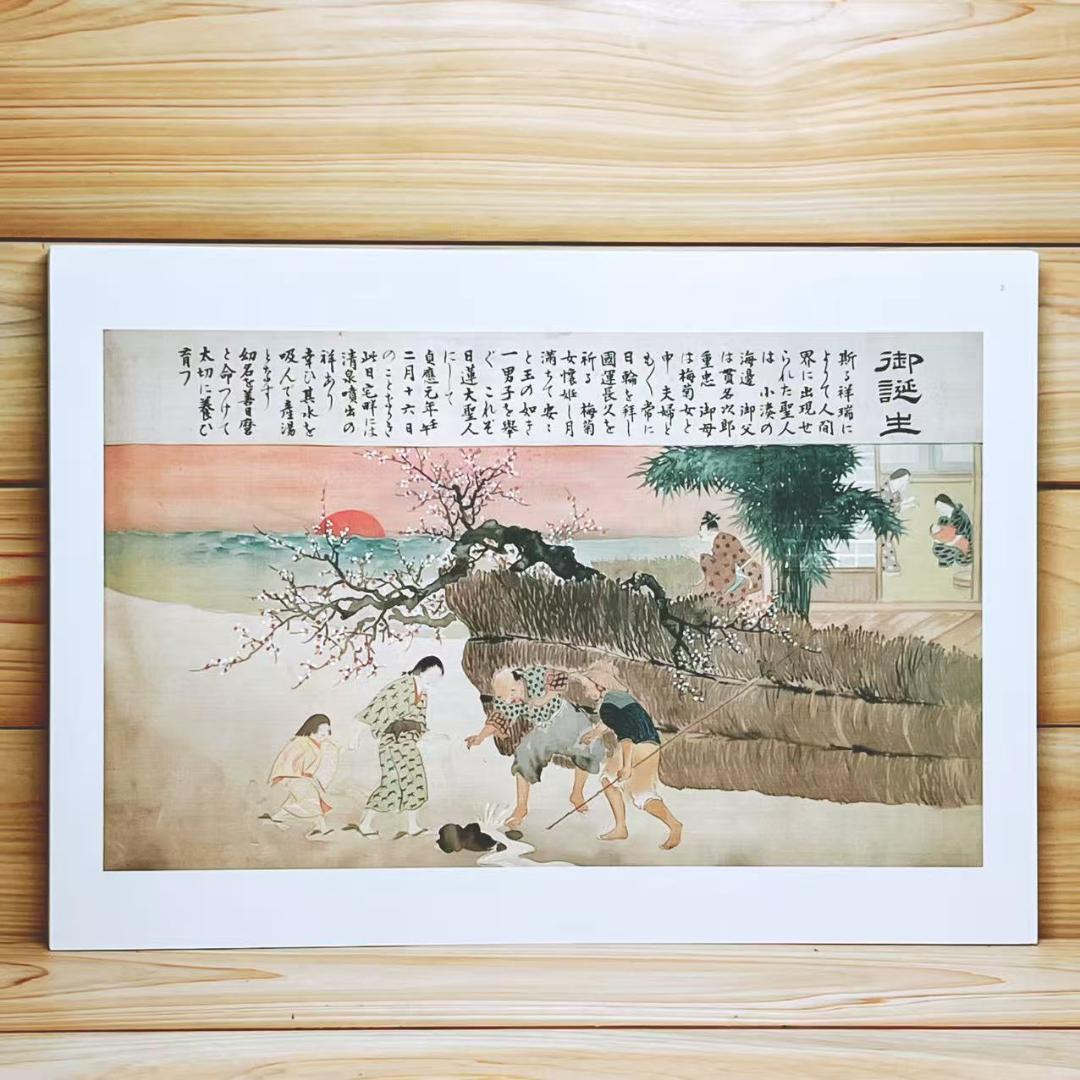 御誕生
斯る祥瑞に
よりて人間
界に出現せ
られた聖人
は 小湊の
海邊 御父
は貫名次郎
重忠 御母
は梅菊女と
申 夫婦と
もく 常に
日輪を拝し
國運長久を
祈る 梅菊
女懐妊し月
満ちて安〻
と玉の如き
一男子を擧
ぐ これぞ
日蓮大聖人
にして
貞應元年壬午
二月十六日
のことなりき
此日宅畔には
清泉噴出の
祥あり
幸ひ其水を
吸んで産湯
となす
幼名を善日麿
と命つけて
太切に養ひ
育つ
2